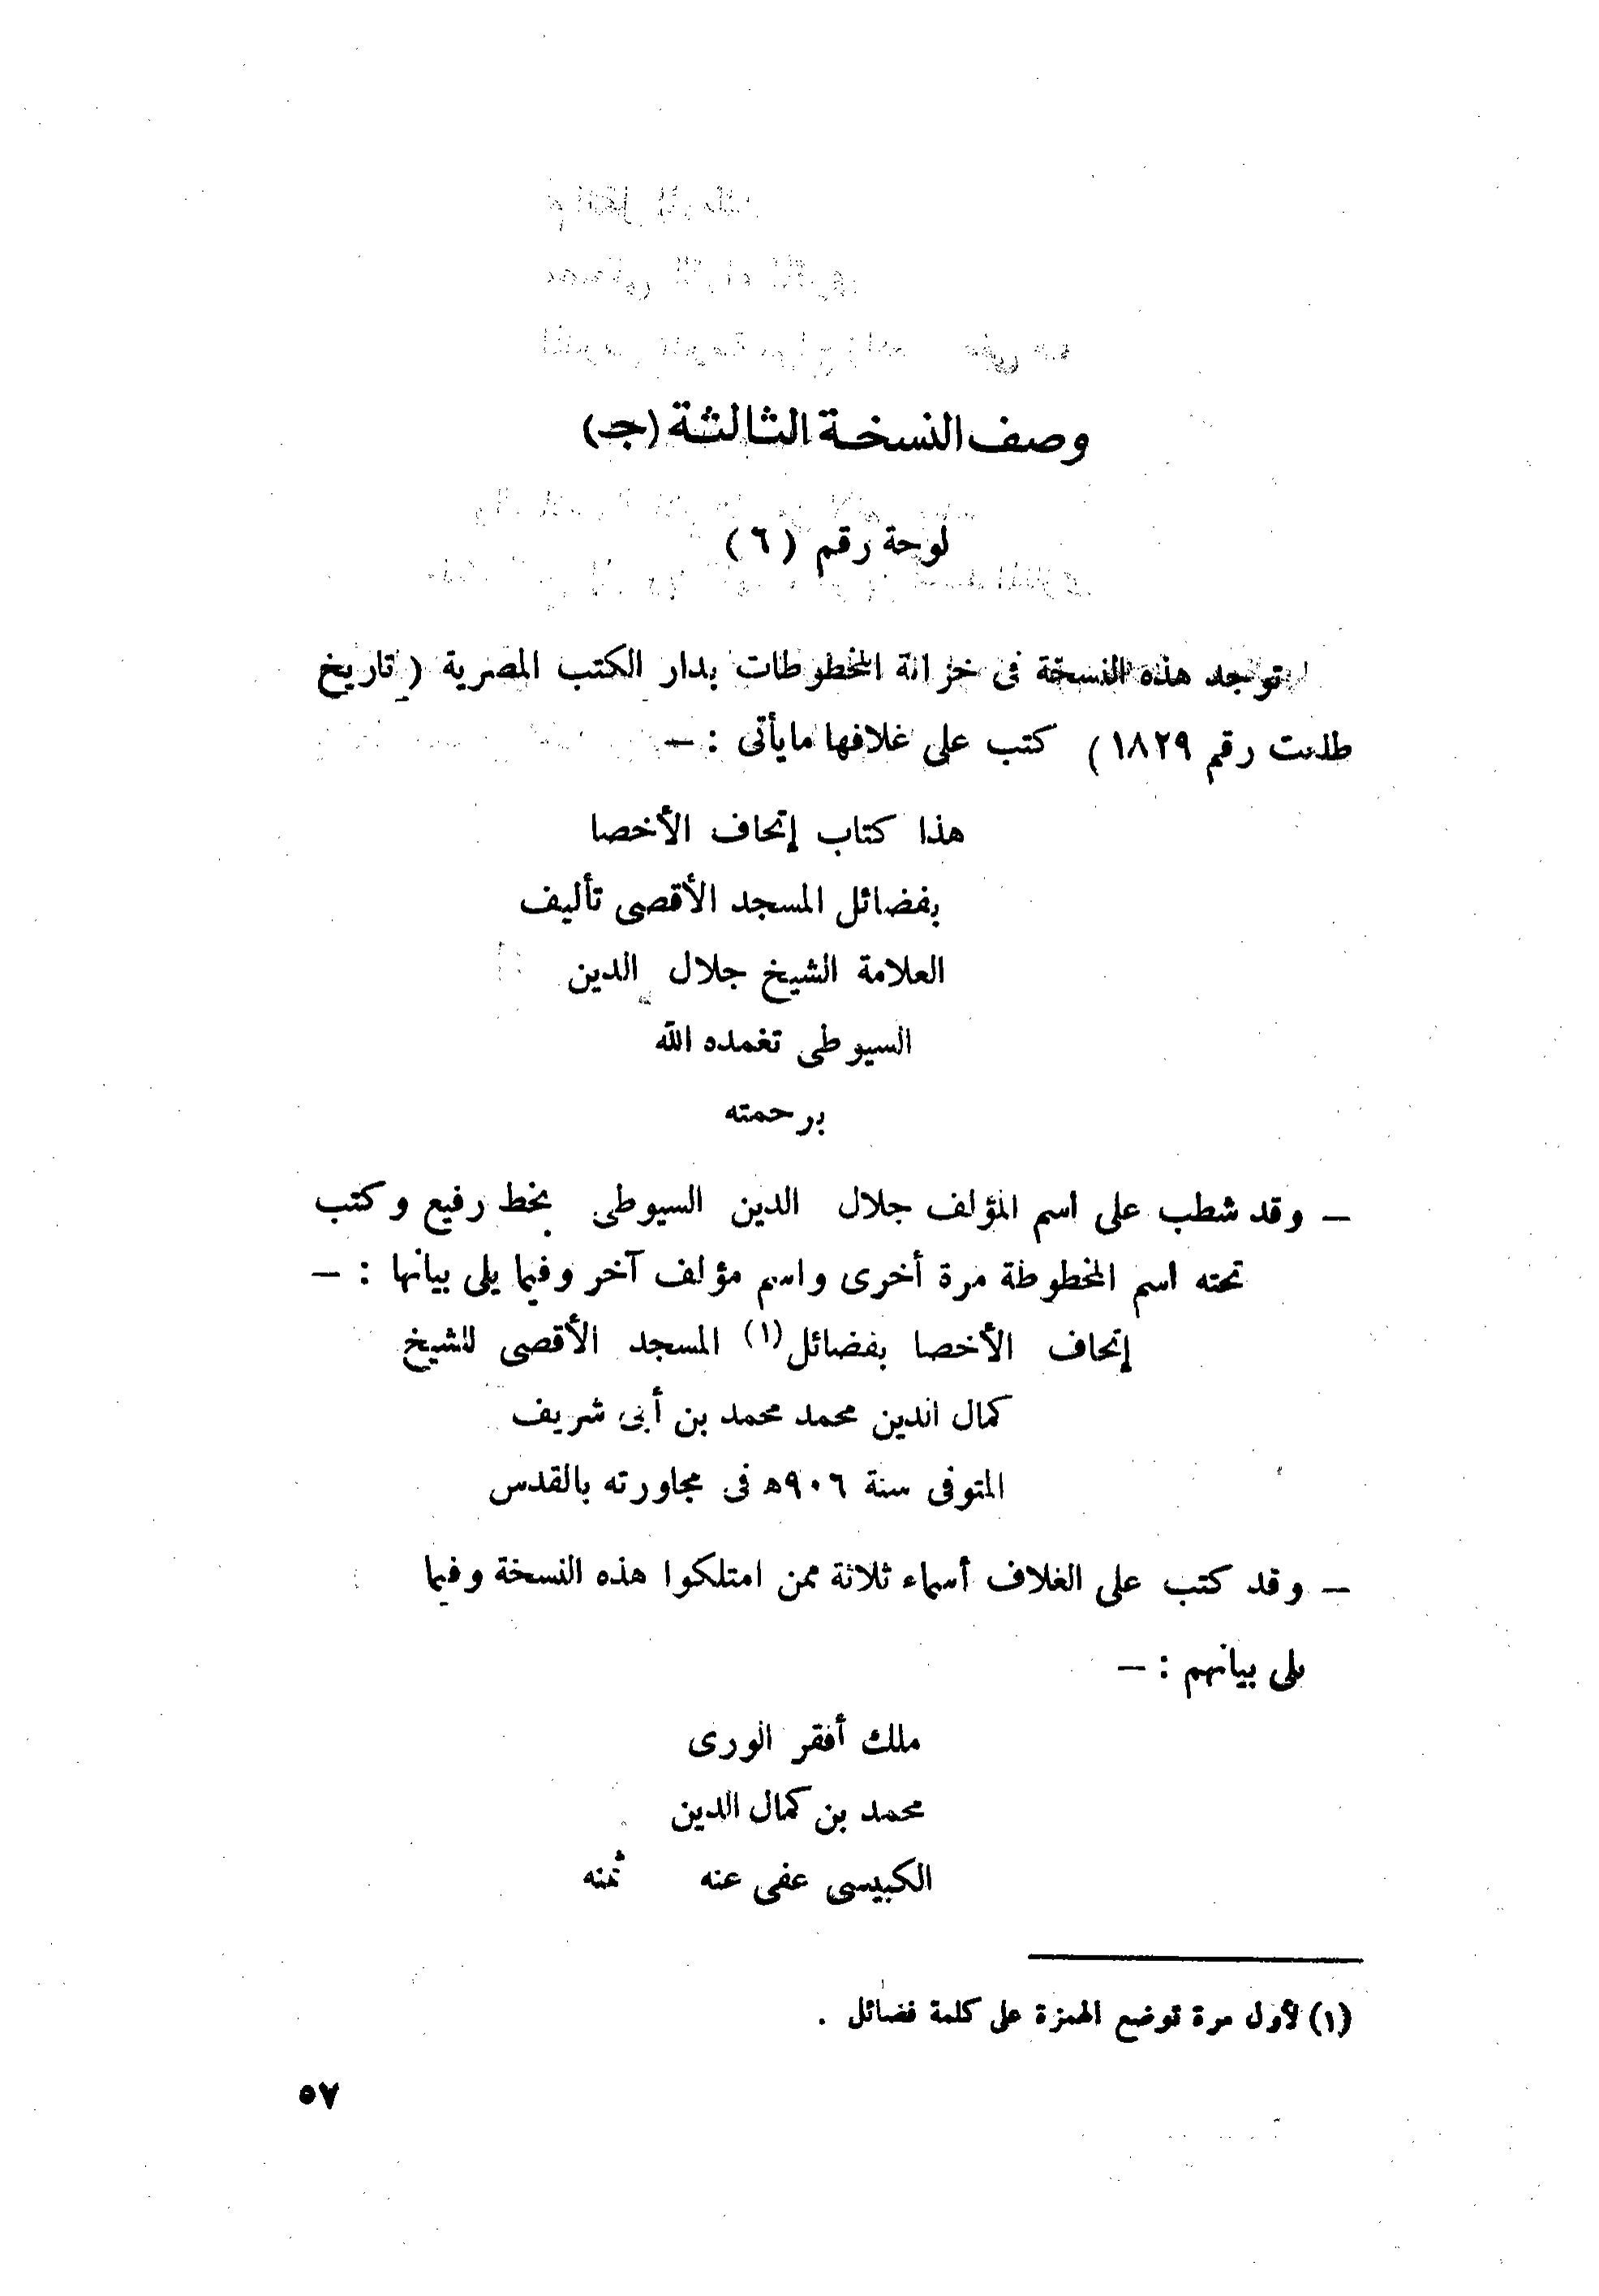 وصف النسخة الثالثة (جـ)
لوحة رقم (٦)
توجد هذه النسخة فى خزانة المخطوطات بدار الكتب المصرية (تاريخ
طلعت رقم ١٨٢٩) كتب على غلافها مايأتى : —
هذا كتاب إتحاف الأخصا
بفضائل المسجد الأقصى تأليف
العلامة الشيخ جلال الدين
السيوطى تغمده الله
برحمته
— وقد شطب على اسم المؤلف جلال الدين السيوطى بخط رفيع وكتب
تحته اسم المخطوطة مرة أخرى واسم مؤلف آخر وفيما يلى بيانها : —
إتحاف الأخصا بفضائل(١) المسجد الأقصى للشيخ
كمال الدين محمد محمد بن أبى شريف
المتوفى سنة ٩٠٦ه فى مجاورته بالقدس
— وقد كتب على الغلاف أسماء ثلاثة ممن امتلكوا هذه النسخة وفيما
يلى بيانهم : —
ملك أفقر الورى
محمد بن كمال الدين
الكبيسى عفى عنه ثمنه
(١) لأول مرة توضع الهمزة على كلمة فضائل .
٥٧